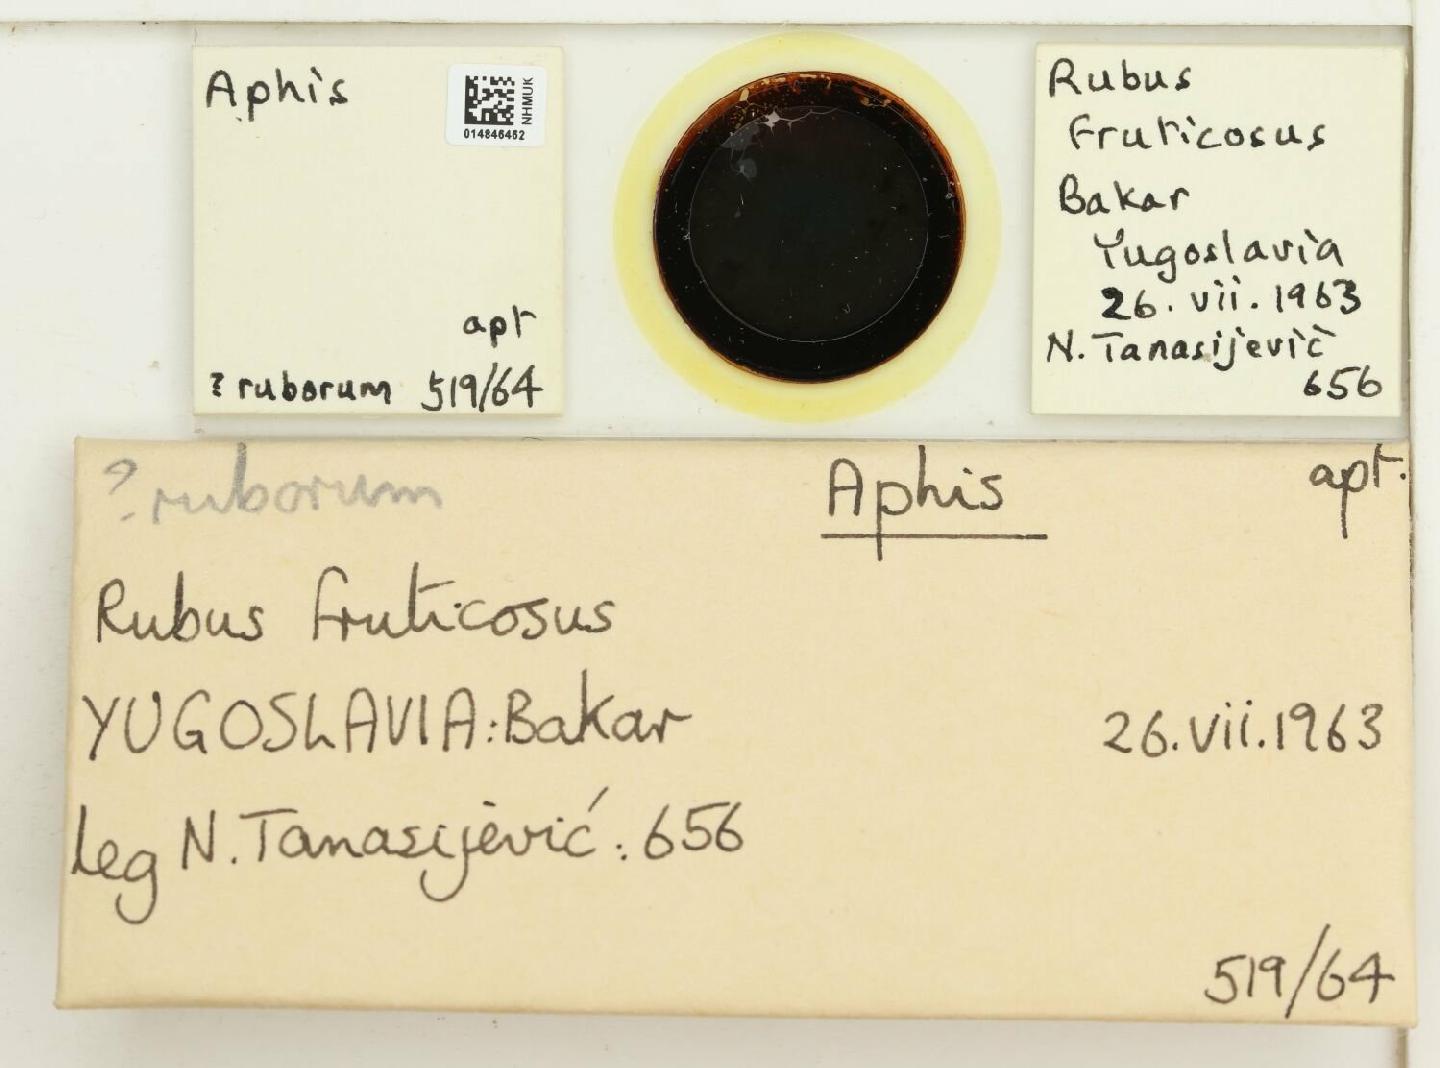 Aphis
NHMUK
014846452
apt
? ruborum 519/64
Rubus
fruticosus
Bakar
Yugoslavia
26.vii.1963
N. Tanasijević
656
? ruborum Aphis apt.
Rubus fruticosus
YUGOSLAVIA: Bakar 26.vii.1963
leg N. Tanasijević: 656
519/64